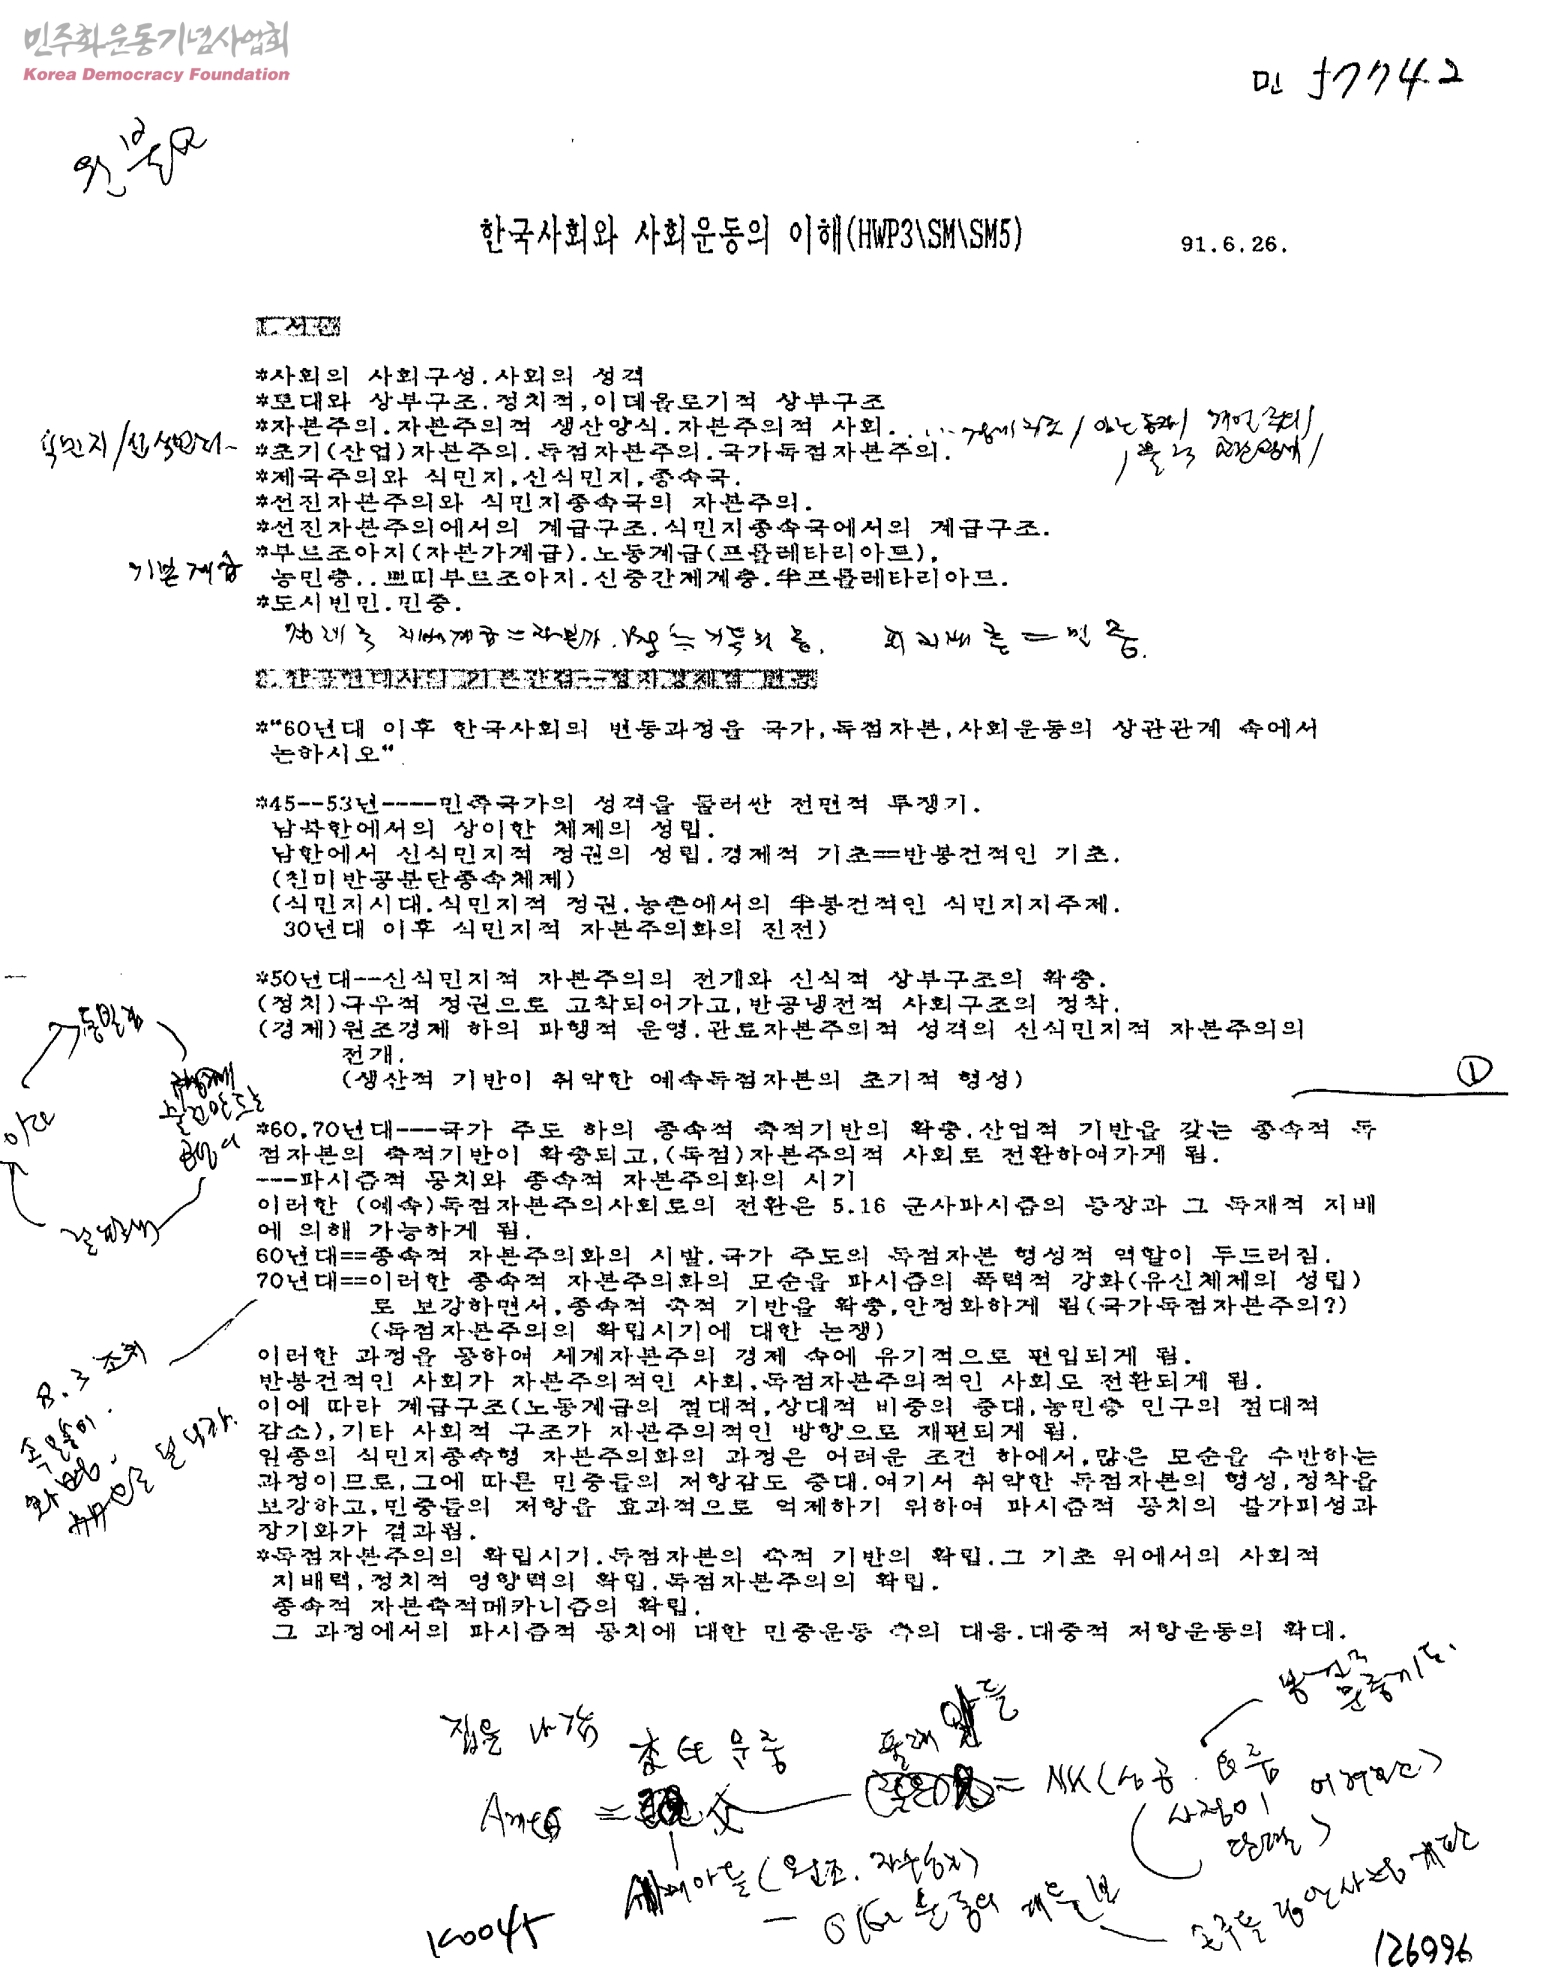 민주화운동기념사업회
Korea Democracy Foundation
민 57742
원본요
한국사회와 사회운동의 이해(HWP3\SM\SM5)
91.6.26.
1.서론
*사회의 사회구성.사회의 성격
*토대와 상부구조.정치적,이데올로기적 상부구조
*자본주의.자본주의적 생산양식.자본주의적 사회.
식민지/신식민지-
*초기(산업)자본주의.독점자본주의.국가독점자본주의.
*제국주의와 식민지,신식민지,종속국.
*선진자본주의와 식민지종속국의 자본주의.
*선진자본주의에서의 계급구조.식민지종속국에서의 계급구조.
기본계급
*부르조아지(자본가계급).노동계급(프롤레타리아트),
농민층..쁘띠부르조아지.신중간제계층.半프롤레타리아트.
*도시빈민.민중.
피지배층=민중.
2.한국현대사의 기본관점--정치경제적 변동
*"60년대 이후 한국사회의 변동과정을 국가,독점자본,사회운동의 상관관계 속에서
논하시오"
*45--53년----민족국가의 성격을 둘러싼 전면적 투쟁기.
남북한에서의 상이한 체제의 성립.
남한에서 신식민지적 정권의 성립.경제적 기초==반봉건적인 기초.
(친미반공분단종속체제)
(식민지시대.식민지적 정권.농촌에서의 半봉건적인 식민지지주제.
30년대 이후 식민지적 자본주의화의 진전)
*50년대--신식민지적 자본주의의 전개와 신식적 상부구조의 확충.
(정치)극우적 정권으로 고착되어가고,반공냉전적 사회구조의 정착.
(경제)원조경제 하의 파행적 운영.관료자본주의적 성격의 신식민지적 자본주의의
전개.
(생산적 기반이 취약한 예속독점자본의 초기적 형성)
①
*60,70년대---국가 주도 하의 종속적 축적기반의 확충.산업적 기반을 갖는 종속적 독
점자본의 축적기반이 확충되고,(독점)자본주의적 사회로 전환하여가게 됨.
---파시즘적 통치와 종속적 자본주의화의 시기
이러한 (예속)독점자본주의사회로의 전환은 5.16 군사파시즘의 등장과 그 독재적 지배
에 의해 가능하게 됨.
60년대==종속적 자본주의화의 시발.국가 주도의 독점자본 형성적 역할이 두드러짐.
70년대==이러한 종속적 자본주의화의 모순을 파시즘의 폭력적 강화(유신체제의 성립)
로 보강하면서,종속적 축적 기반을 확충,안정화하게 됨(국가독점자본주의?)
(독점자본주의의 확립시기에 대한 논쟁)
8.3 조치
이러한 과정을 통하여 세계자본주의 경제 속에 유기적으로 편입되게 됨.
반봉건적인 사회가 자본주의적인 사회,독점자본주의적인 사회로 전환되게 됨.
이에 따라 계급구조(노동계급의 절대적,상대적 비중의 증대,농민층 인구의 절대적
감소),기타 사회적 구조가 자본주의적인 방향으로 재편되게 됨.
일종의 식민지종속형 자본주의화의 과정은 어려운 조건 하에서,많은 모순을 수반하는
과정이므로,그에 따른 민중들의 저항감도 증대.여기서 취약한 독점자본의 형성,정착을
보강하고,민중들의 저항을 효과적으로 억제하기 위하여 파시즘적 통치의 불가피성과
장기화가 결과됨.
*독점자본주의의 확립시기.독점자본의 축적 기반의 확립.그 기초 위에서의 사회적
지배력,정치적 영향력의 확립.독점자본주의의 확립.
종속적 자본축적메카니즘의 확립.
그 과정에서의 파시즘적 통치에 대한 민중운동 측의 대응.대중적 저항운동의 확대.
집을 나감
K0045
126996